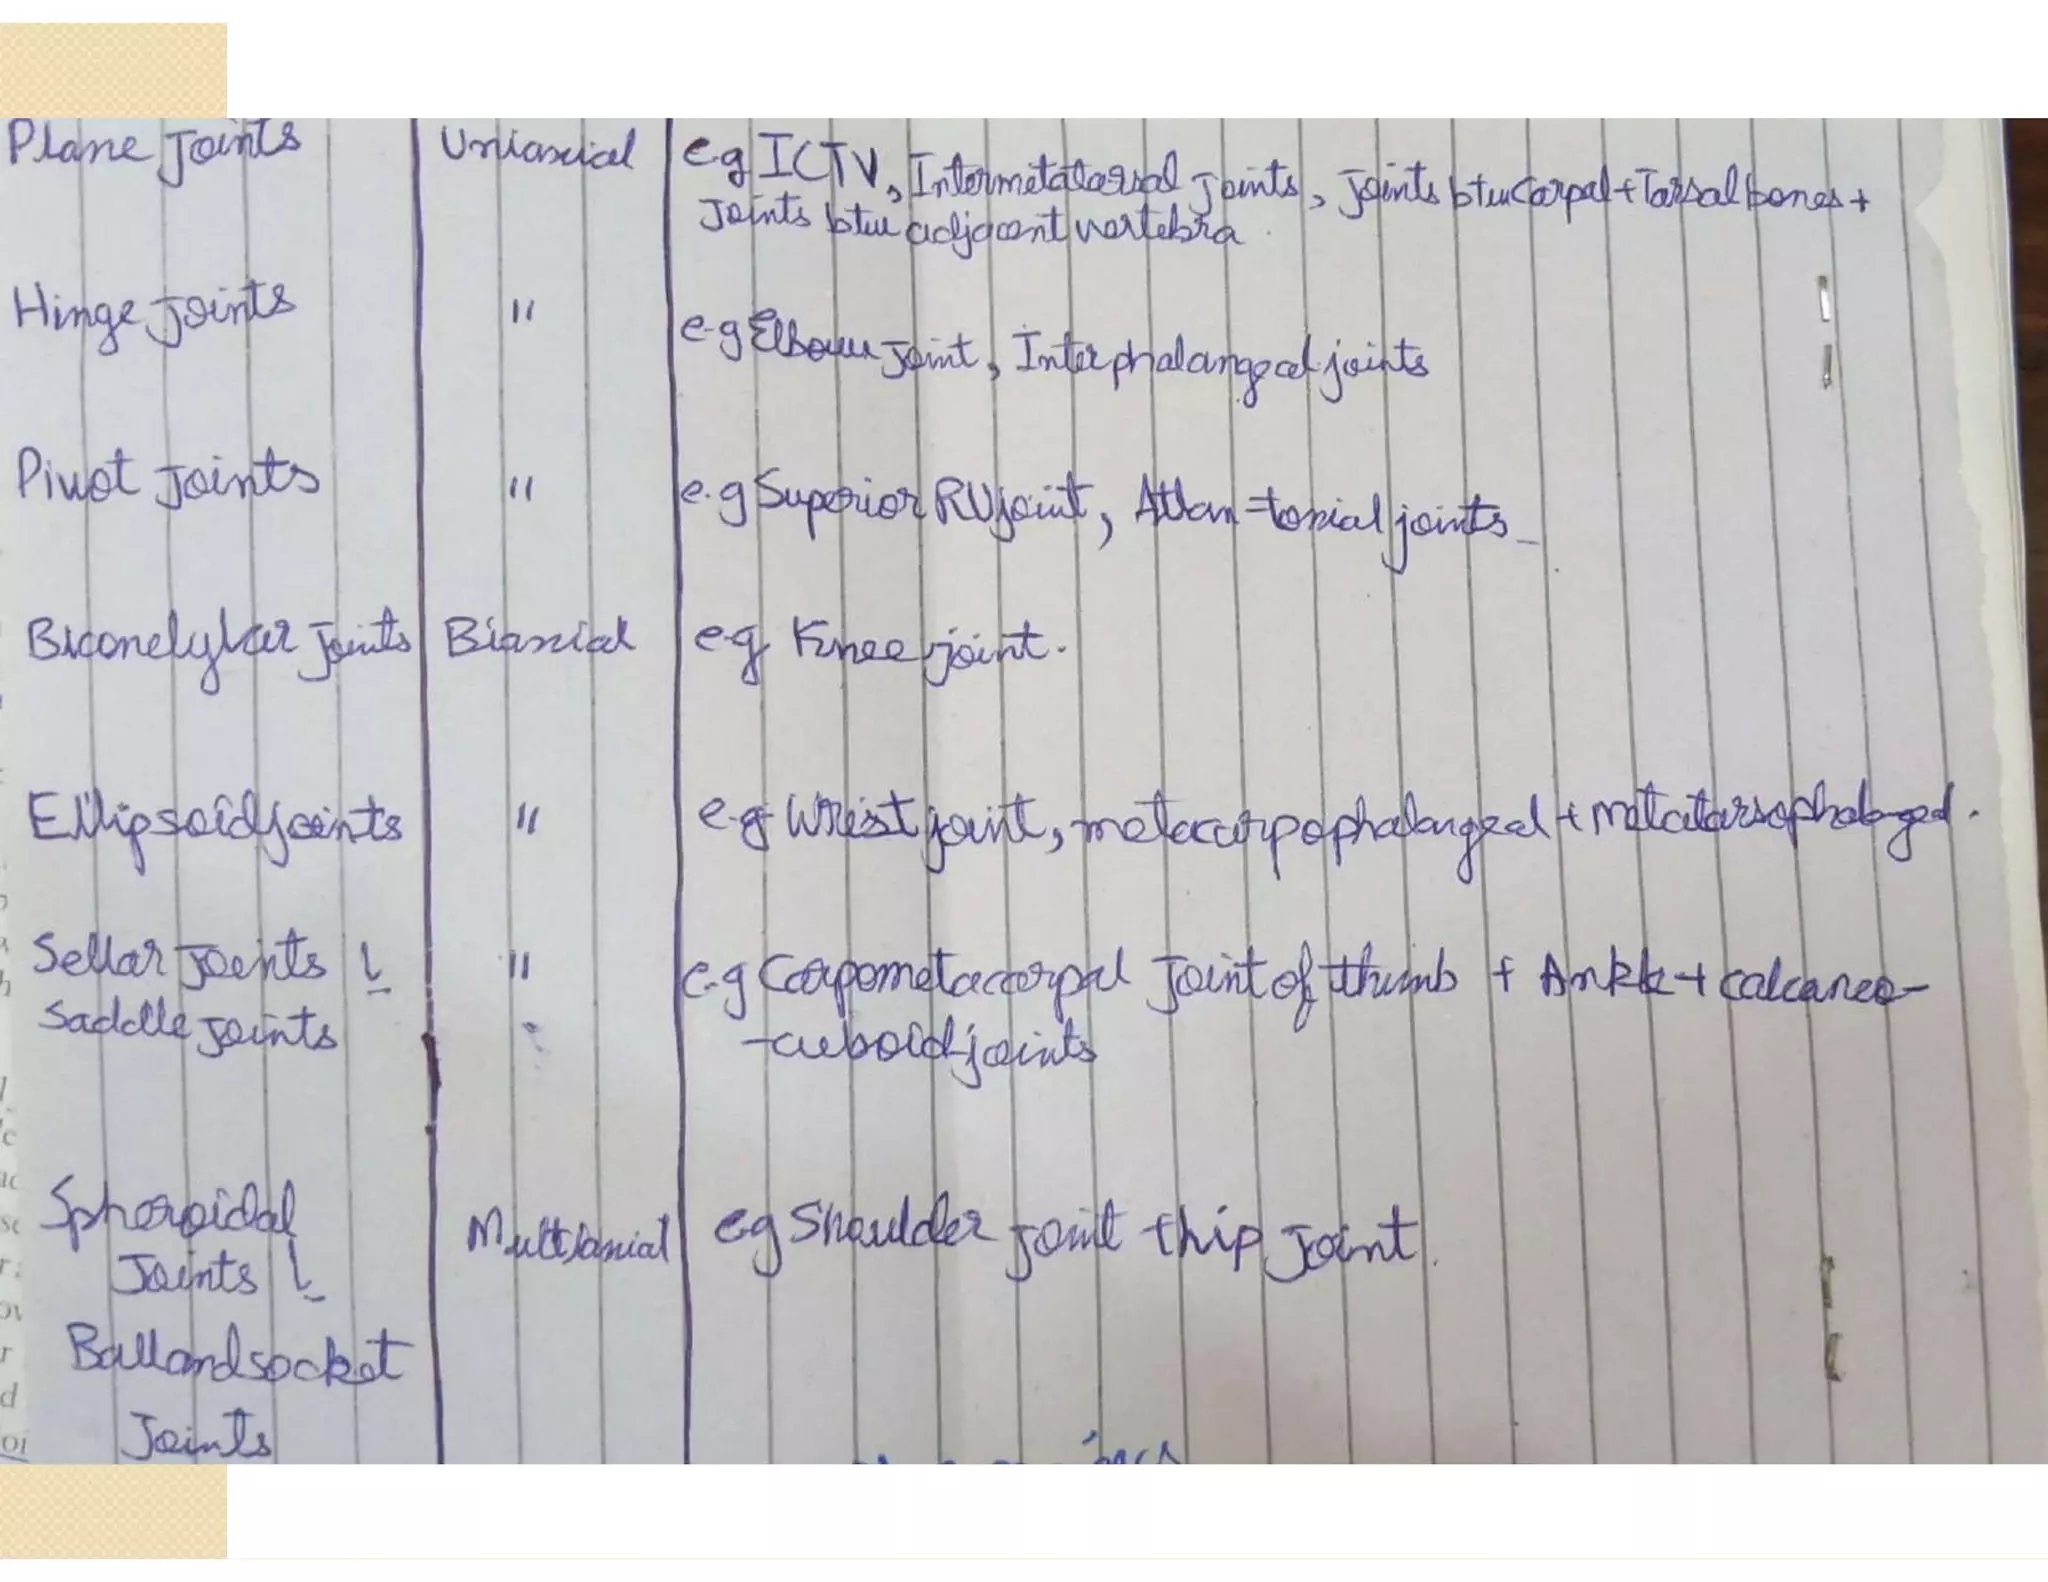 Plane Joints Uniaxial e.g ICTV, Intermetatarsal joints, Joints btw Carpal + Tarsal bones +
Joints btw adjacent vertebra
Hinge joints " e.g Elbow Joint, Interphalangeal joints
Pivot Joints " e.g Superior RU joint, Atlan=toaxial joints
Biconelylar Joints Biaxial e.g Knee joint.
Ellipsoid joints " e.g Wrist joint, metacarpophalangeal + metatarsophalangeal.
Sellar Joints " e.g Carpometacarpal Joint of thumb + Ankle + calcaneo-
Saddle joints -cuboid joints
Spheroidal
Joints Multiaxial e.g Shoulder joint + hip Joint.
Ball and socket
Joints